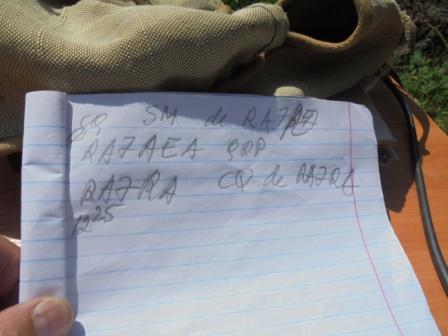 CQ SM de RA7RA
RA7AEA QRP
RA7RA CQ de RA7RA
12 25